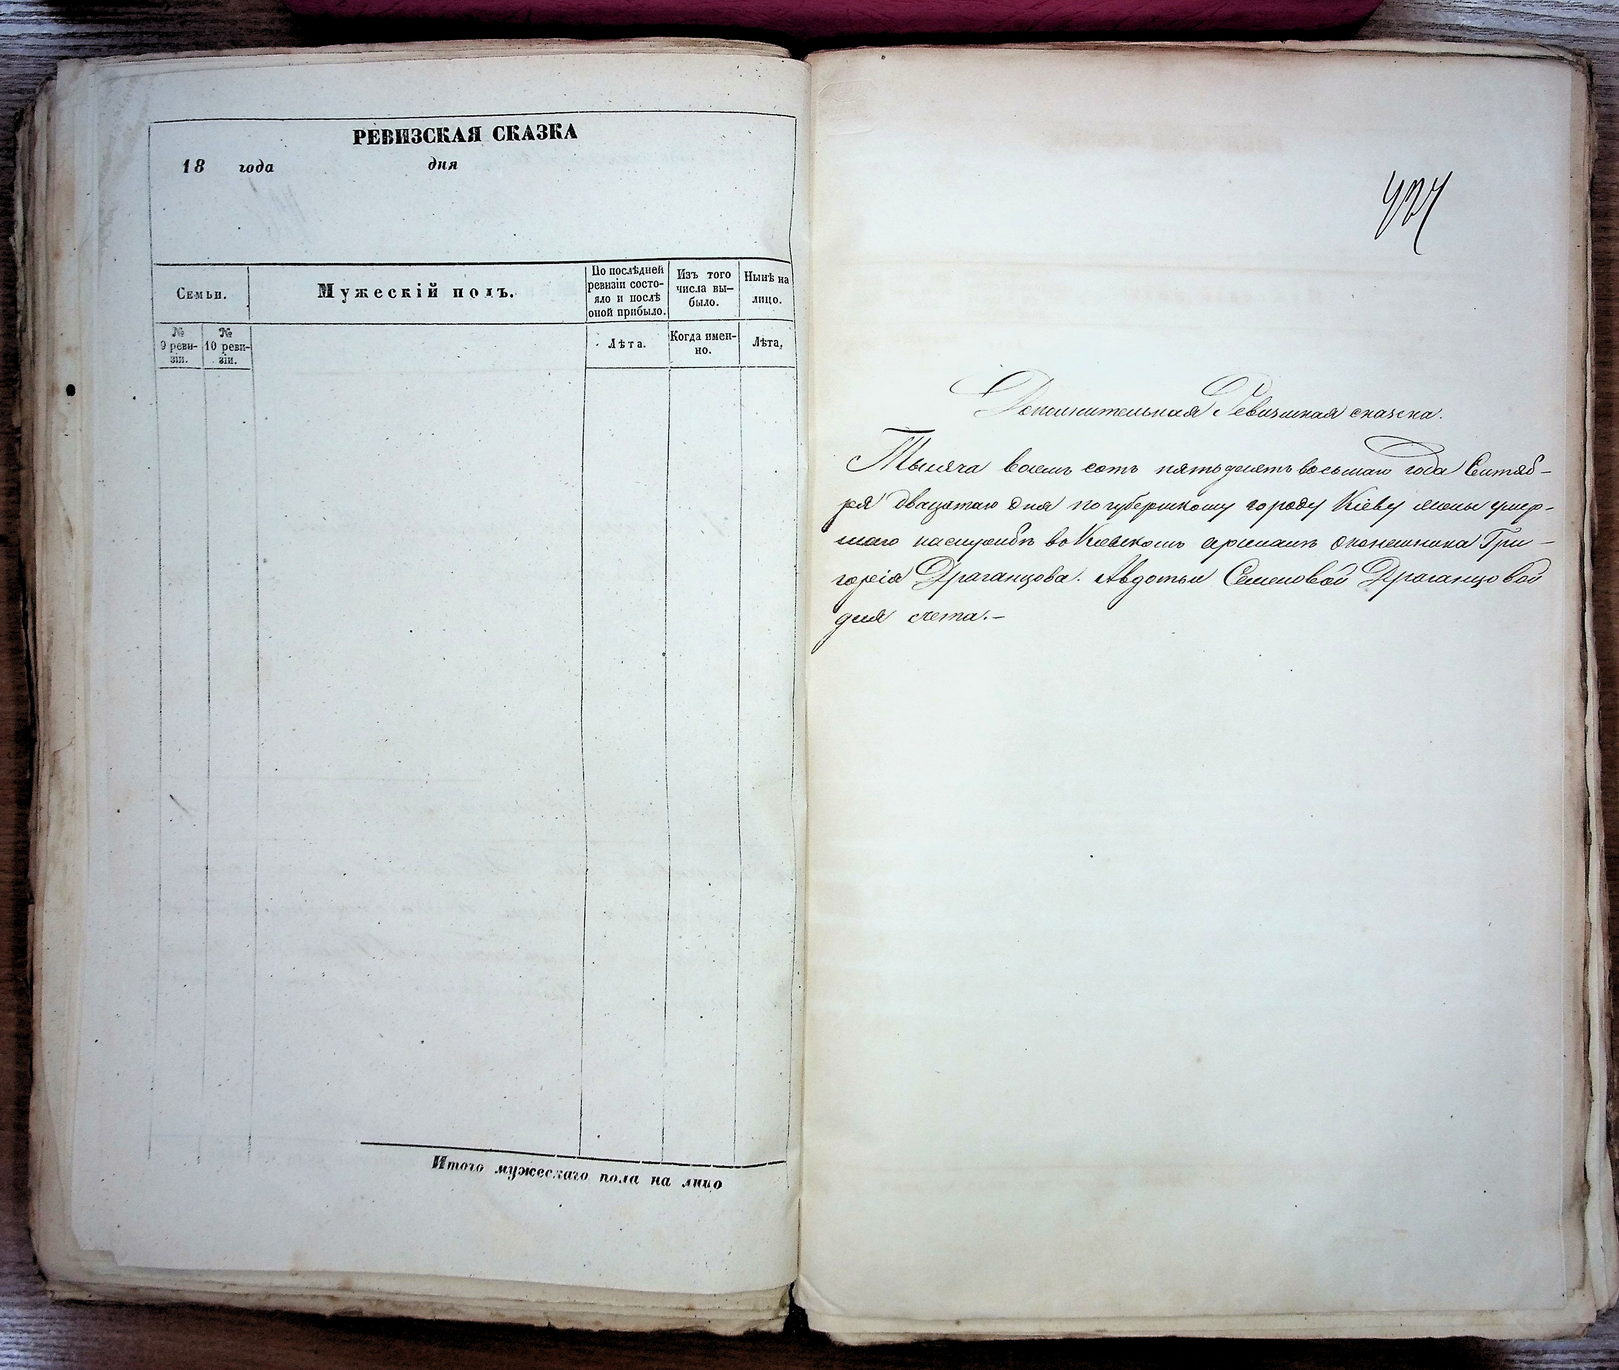 РЕВИЗСКАЯ СКАЗКА
18 года дня
Семьи.
Мужескій полъ.
По послѣдней ревизіи состо-яло и послѣ оной прибыло.
Изъ того числа вы-было.
Нынѣ на лицо.
№ 9 реви-зіи.
№ 10 реви-зіи.
Лѣта.
Когда имен-но.
Лѣта,
Итого мужескаго пола на лицо
424
Дополнительная Ревизская сказка.
Тысяча восемь сотъ пятьдесятъ восьмаго года Сентяб-
ря двацатаго дня по губернскому городу Кіеву жены умер-
шаго на службѣ въ Кіевскомъ арсеналѣ Гри-
горія Драганцова. Авдотьи Семеновой Драганцовой
для счета.-